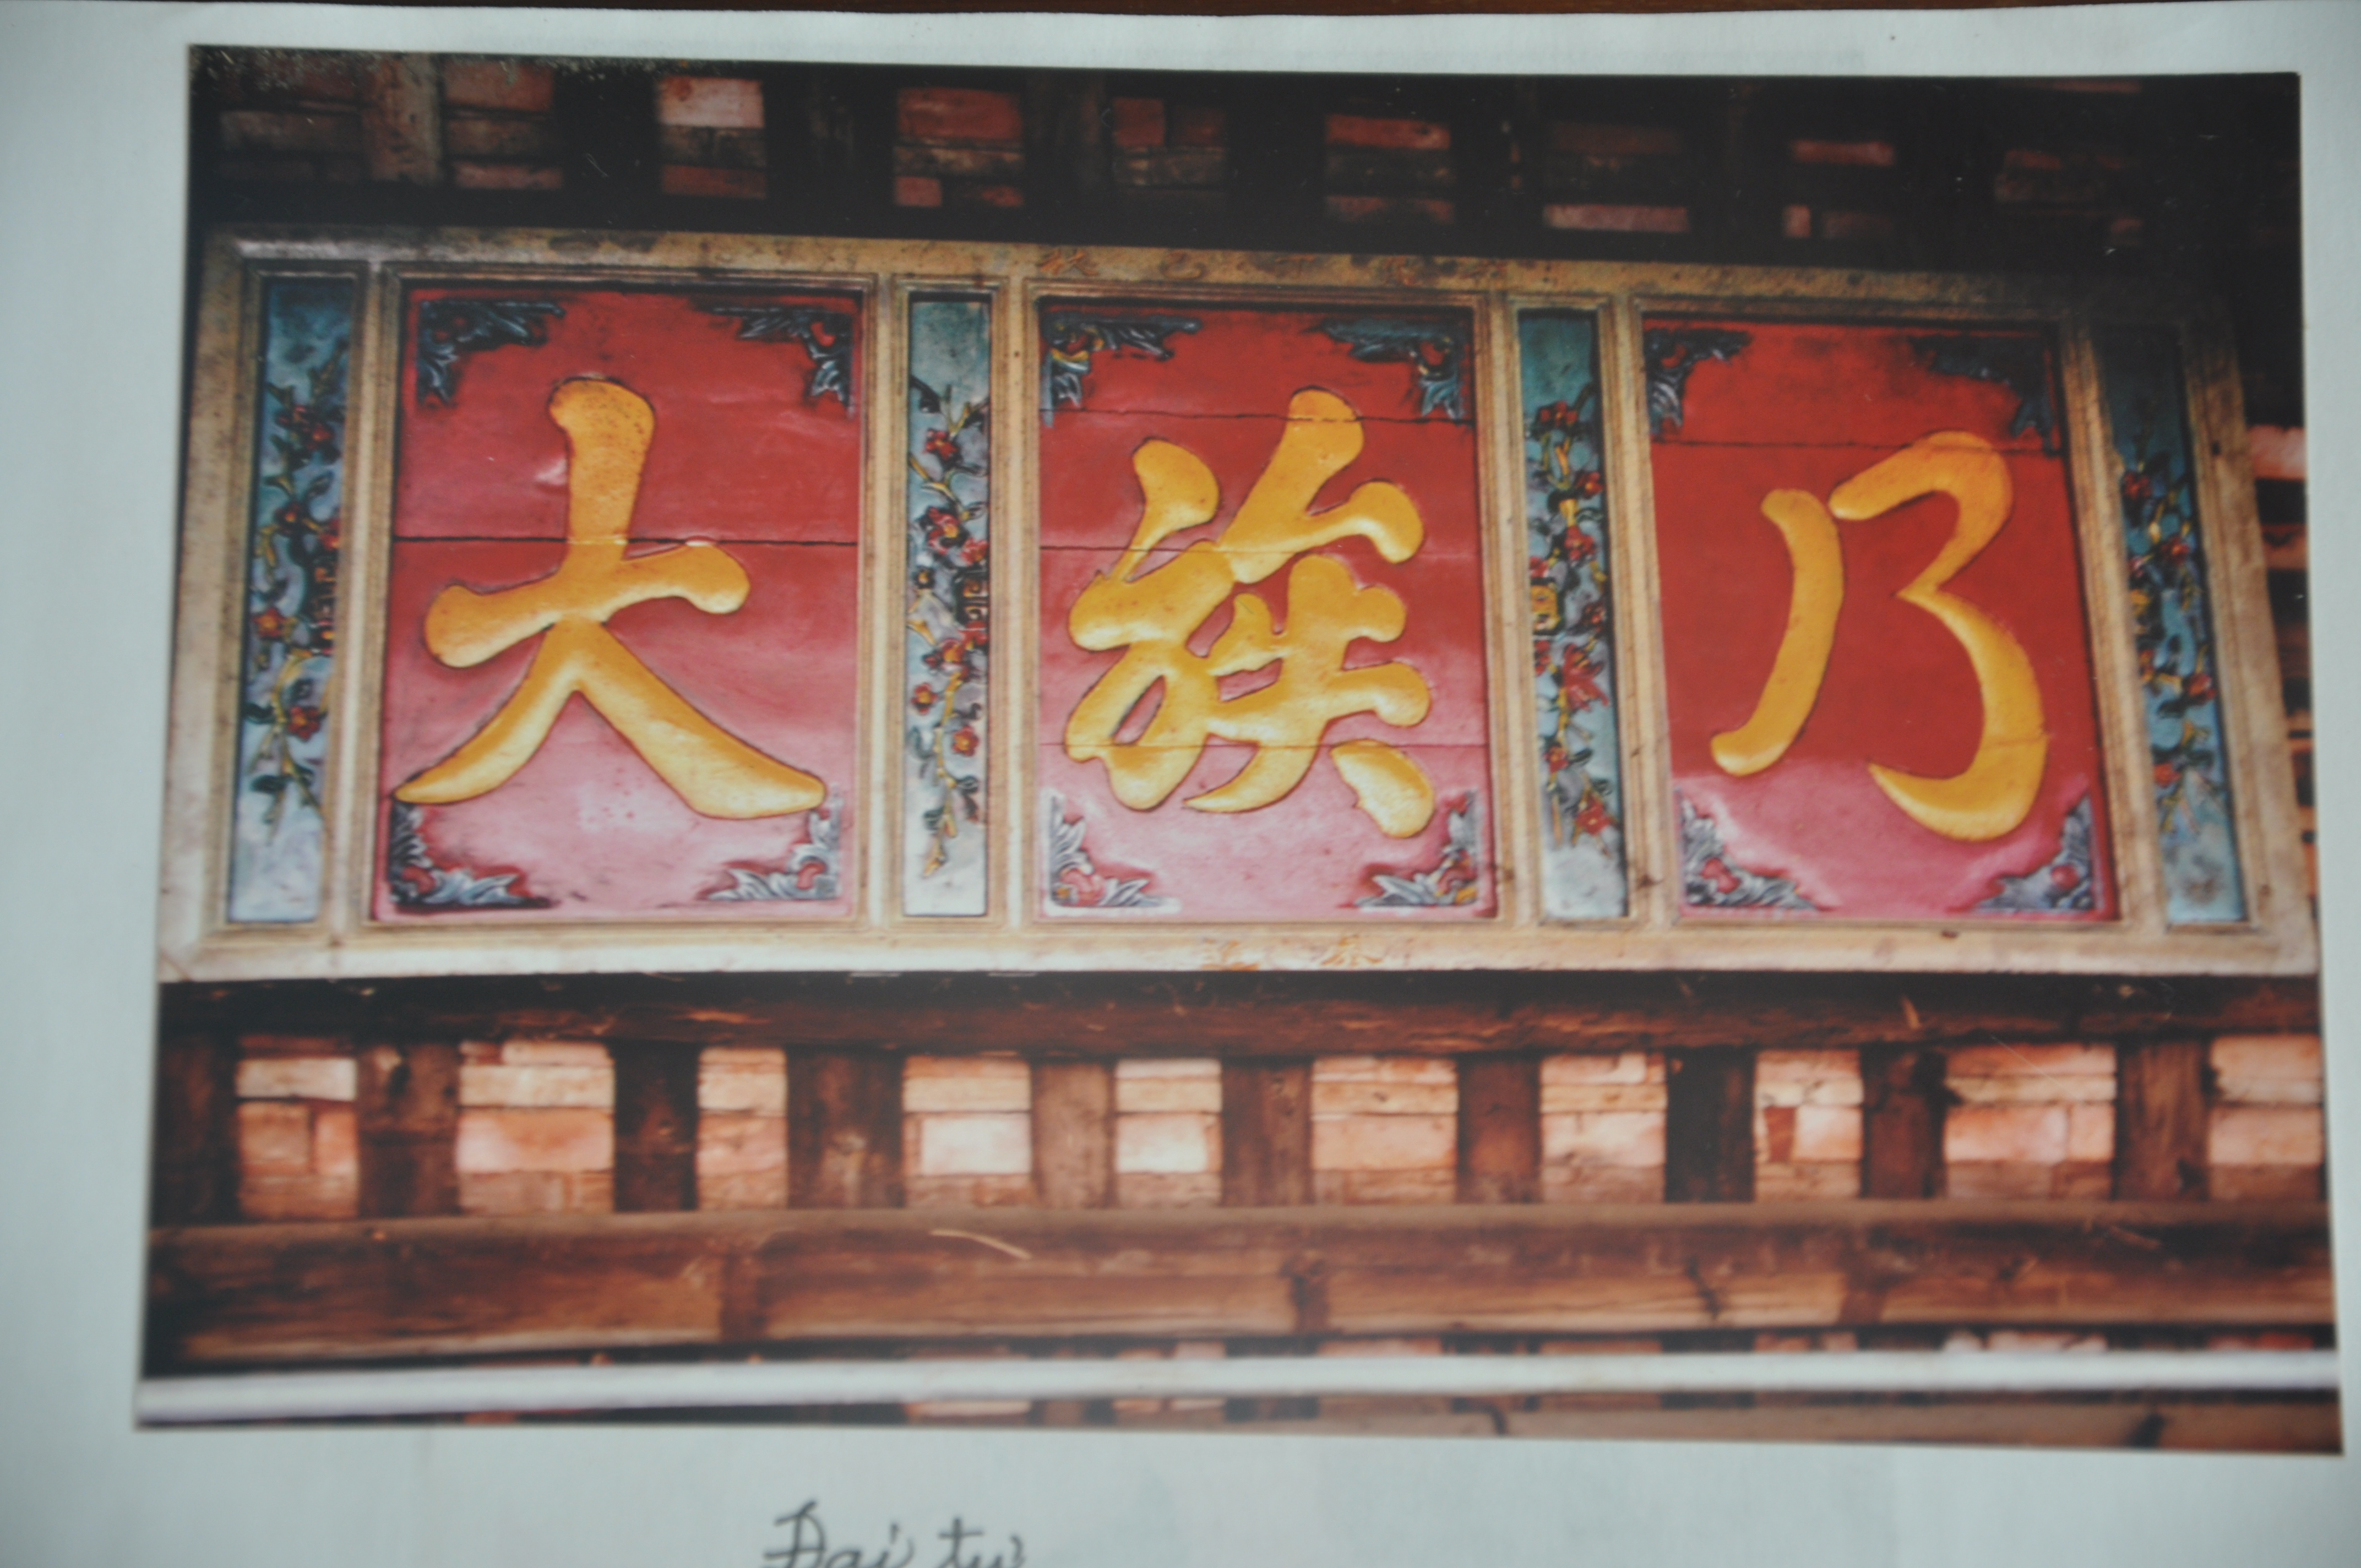 乃族大
Đại tự